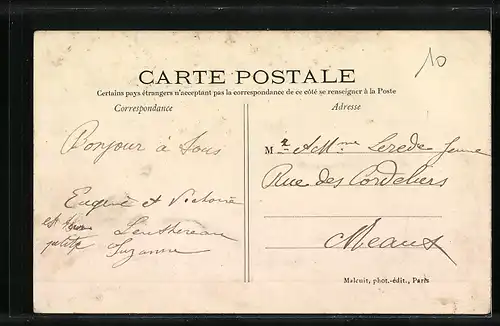 10
CARTE POSTALE
Certains pays étrangers n'acceptant pas la correspondance de ce côté se renseigner à la Poste
Correspondance
Adresse
Bonjour à Tous
Eugène et Victoire
et leur
petite
Suzanne
Mr et Mme Lerede Jeune
Rue des Cordeliers
Meaux
Malcuit, phot.-édit., Paris